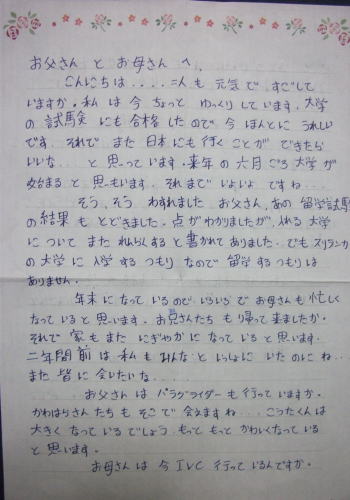 お父さん と お母さん へ、
こんにちは....二人も 元気で すごして
いますか。私は 今 ちょっと ゆっくりしています。大学
の 試験 にも 合格したので 今 ほんとに うれしい
です。それで また 日本にも 行く ことが できたら
いいな... と 思っています。来年の 六月 ごろ 大学が
始まる と 思もいます。それまで いよいよ ですね...
そう、そう わすれました お父さん、あの 留学試験
の 結果 も とどきました。点が わかりましたが、入れる 大学
に ついて また れんらくする と 書かれて ありました.. でも スリランカ
の 大学 に 入学 する つもり なので 留学 する つもり は
ありません。
年末に なって いるので、いろいろで お母さんも 忙しく
なって いると 思います。お兄さんたち も 帰って 来ましたか。
それで 家も また にぎやか に なって いると 思います。
二年間前 は 私も みんな と いっしょに いた のに ね..
また 皆に 会いたいな....
お父さんは パラグライダー も 行って いますか。
かわはらさん たちも そこで 会えますね... こうたくんは
大きく なって いる でしょう。もっと もっと かわいく なって いる
と 思います。
お母さんは 今 IVC 行って いるんですか。